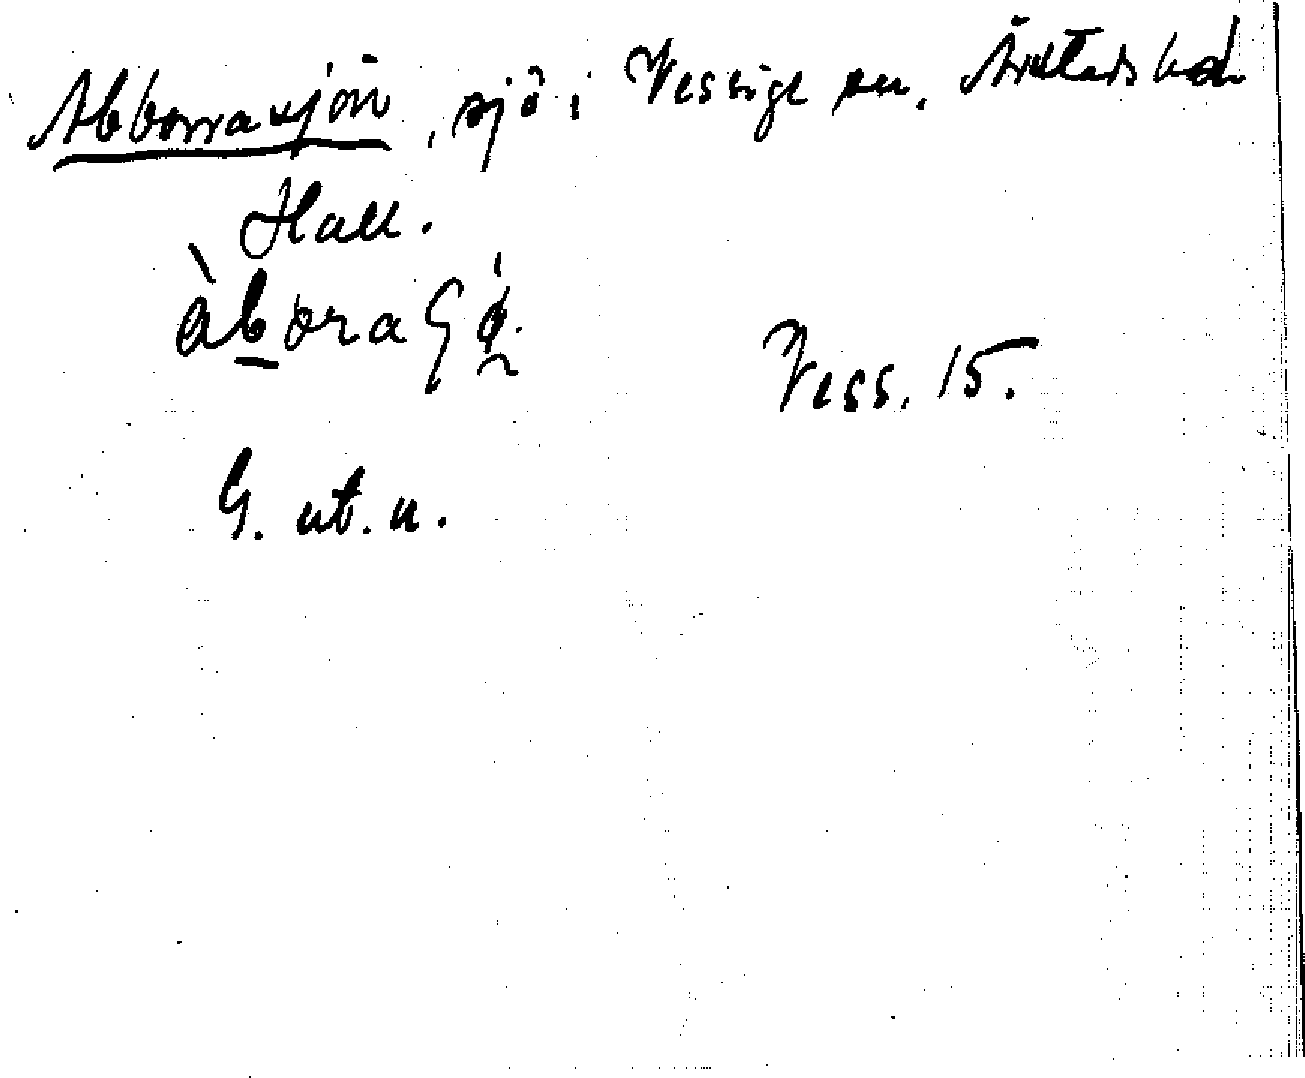 Abborrasjön, sjö i Vessige sn. Årstads hd
Hall.
àboraʃǿ.
Vess. 15.
G. ut. u.